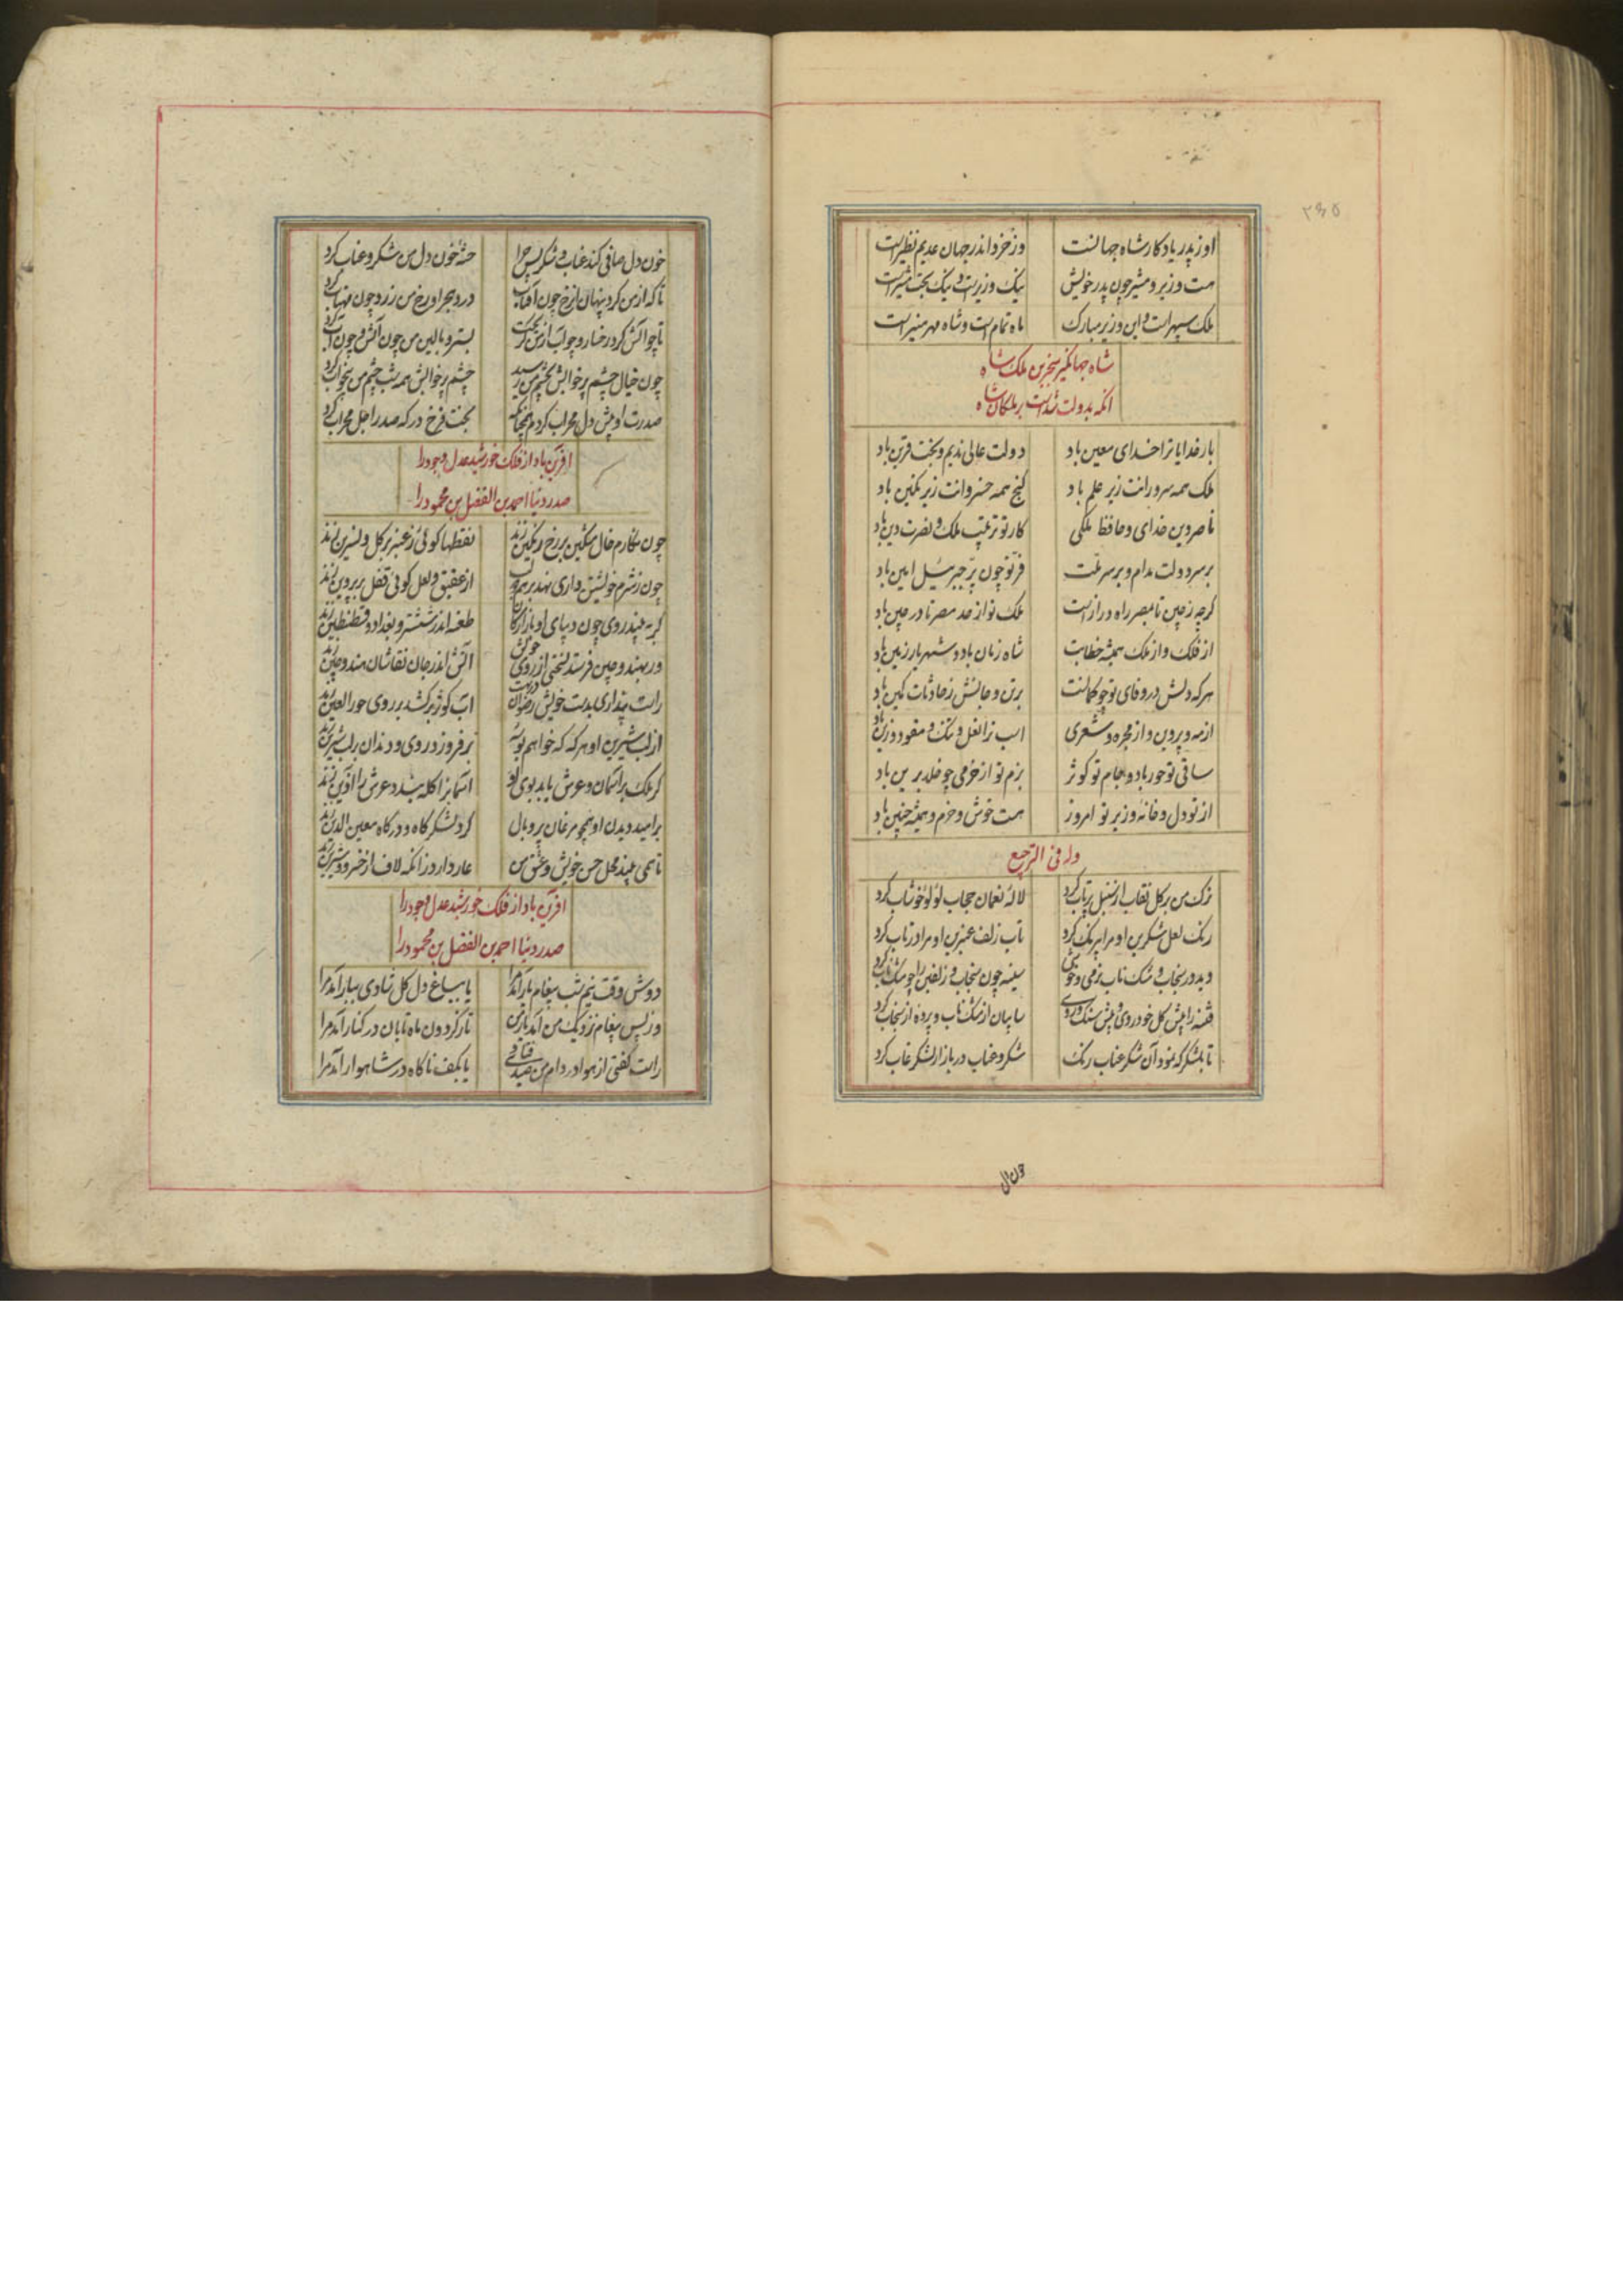 ۲۳۵
او ز پدر یادکار شاه جهانست وز خرد اندر جهان عدیم نظیر است
هست وزیر و مشیر چون پدر خویش نیک وزیرست و نیک بخت مشیر است
ملک سپهر است و این وزیر مبارک ماه تمام است و شاه مهر منیر است
شاه جهانکیر سنجر بن ملک شاه
انکه بدولت شداست بر ملکان شاه
بار خدایا ترا خدای معین باد دولت عالی ندیم و بخت قرین باد
ملک همه سرورانت زیر علم باد کنج همه خسروانت زیر نکین باد
ناصر دین خدای و حافظ ملکی کار تو ترتیب ملک و نصرت دین باد
بر سر دولت مدام و بر سر ملت فر تو چون پر جبرئیل امین باد
کرچه ز چین تا بمصر راه دراز است ملک تو از حد مصر تا در چین باد
از فلک و از ملک همیشه خطابت شاه زمان باد و شهریار زمین باد
هرکه دلش در وفای تو چو کمانست بر تن و جانش ز حادثات کمین باد
از مه و پروین و از مجره و شعری اسب ترا نعل و تنک و مقود و زین باد
ساقی تو حور باد و جام تو کوثر بزم تو از خرمی چو خلد برین باد
از تو دل و خانه وزیر تو امروز هست خوش و خرم و همیشه چنین باد
وله فی الترجیع
ترک من بر کل نقاب از سنبل پرتاب کرد لاله نعمان حجاب لؤلؤ خوشاب کرد
رنک لعل شکرین او مرا بیرنک کرد تاب زلف عنبرین او مرا در تاب کرد
دید در سنجاب و مشک ناب نرمی و خوشی سینه چون سنجاب و زلفین را چو مشک ناب کرد
فتنه را پیش کل خودروی و پیش سنک روی سایبان از مشک ناب و پرده از سنجاب کرد
تا بلشکرکه نمود آن شکر عناب رنک شکر و عناب در بازار لشکر غاب کرد
خون دل صافی کند عناب و شکر پس چرا خسته خون دل من شکر و عناب کرد
تا که از من کرد پنهان رخ چون آفتاب درد هجر او رخ من زرد چون مهتاب کرد
تا چو اتش کرد رخسار و چو آب از من کریخت بستر و بالین من چون آتش و چون آب کرد
چون خیال چشم پر خوابش بچشم من رسید چشم پر خوابش همه شب چشم من بیخواب کرد
صورت او پیش دل محراب کردم همچنانکه بخت فرخ درکه صدر اجل محراب کرد
افرین باد از فلک خورشید عدل و جود را
صدر دنیا احمد بن الفضل بن محمود را
چون نکارم خال مشکین بر رخ رنکین زند نقطها کوئی ز عنبر بر کل و نسرین زند
چون ز شرم خویشتن داری نهد بر هم دو لب از عقیق و لعل کوئی قفل بر پروین زند
کر به بیند روی چون دیبای او بازارکان طعنه اندر ششتر و بغداد و قسطنطین زند
ور بهند و چین فرستد نسختی از روی خویش آتش اندر جان نقاشان هند و چین زند
راست پنداری بدست خویش رضوان در بهشت آب کوثر برکشد بر روی حور العین زند
از لب شیرین او هر که که خواهم بوسه بر فروزد روی و دندان بر لب شیرین زند
کر ملک بر آسمان و عرش یابد بوی او آسمانرا کله بندد عرش را آذین زند
بر امید دیدن او همچو مرغان پر و بال کرد لشکرکاه و درکاه معین الدین زند
تا همی بیند محل حسن خویش و عشق من عار دارد زانکه لاف از خسرو و شیرین زند
افرین باد از فلک خورشید عدل و جود را
صدر دنیا احمد بن الفضل بن محمود را
دوش وقت نیم شب پیغام یار آمد مرا یا بباغ دل کل شادی ببار آمد مرا
وز پس پیغام نزدیک من آمد یار من یا ز کردون ماه تابان در کنار آمد مرا
راست کفتی از هوا در دام من صید اوفتاد یا بکف ناکاه در شاهوار آمد مرا
خون دل